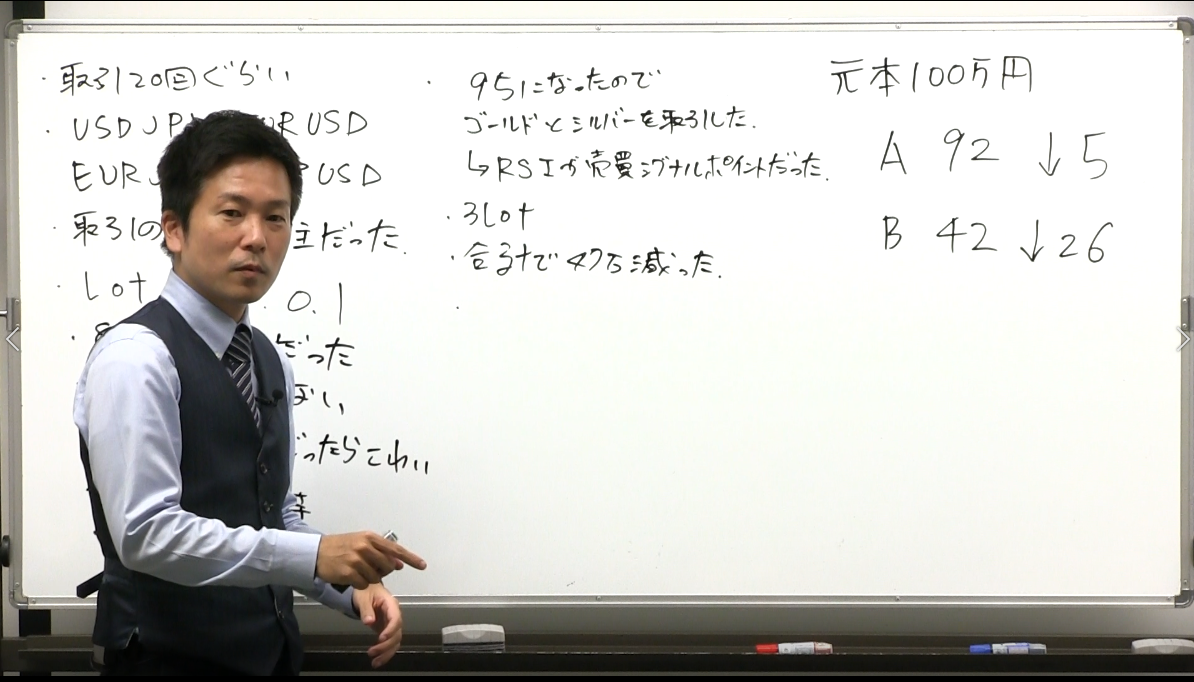 ・取引20回ぐらい
・USDJPY EURUSD
EUR PUSD
・取引の 主だった.
・Lot 0.1
だった
ぽい
だったらこわい
率
・951になったので
ゴールドとシルバーを取引した.
↳RSIが売買シグナルポイントだった.
・3Lot
・合計で47万減った.
・
元本100万円
A 92 ↓5
B 42 ↓26